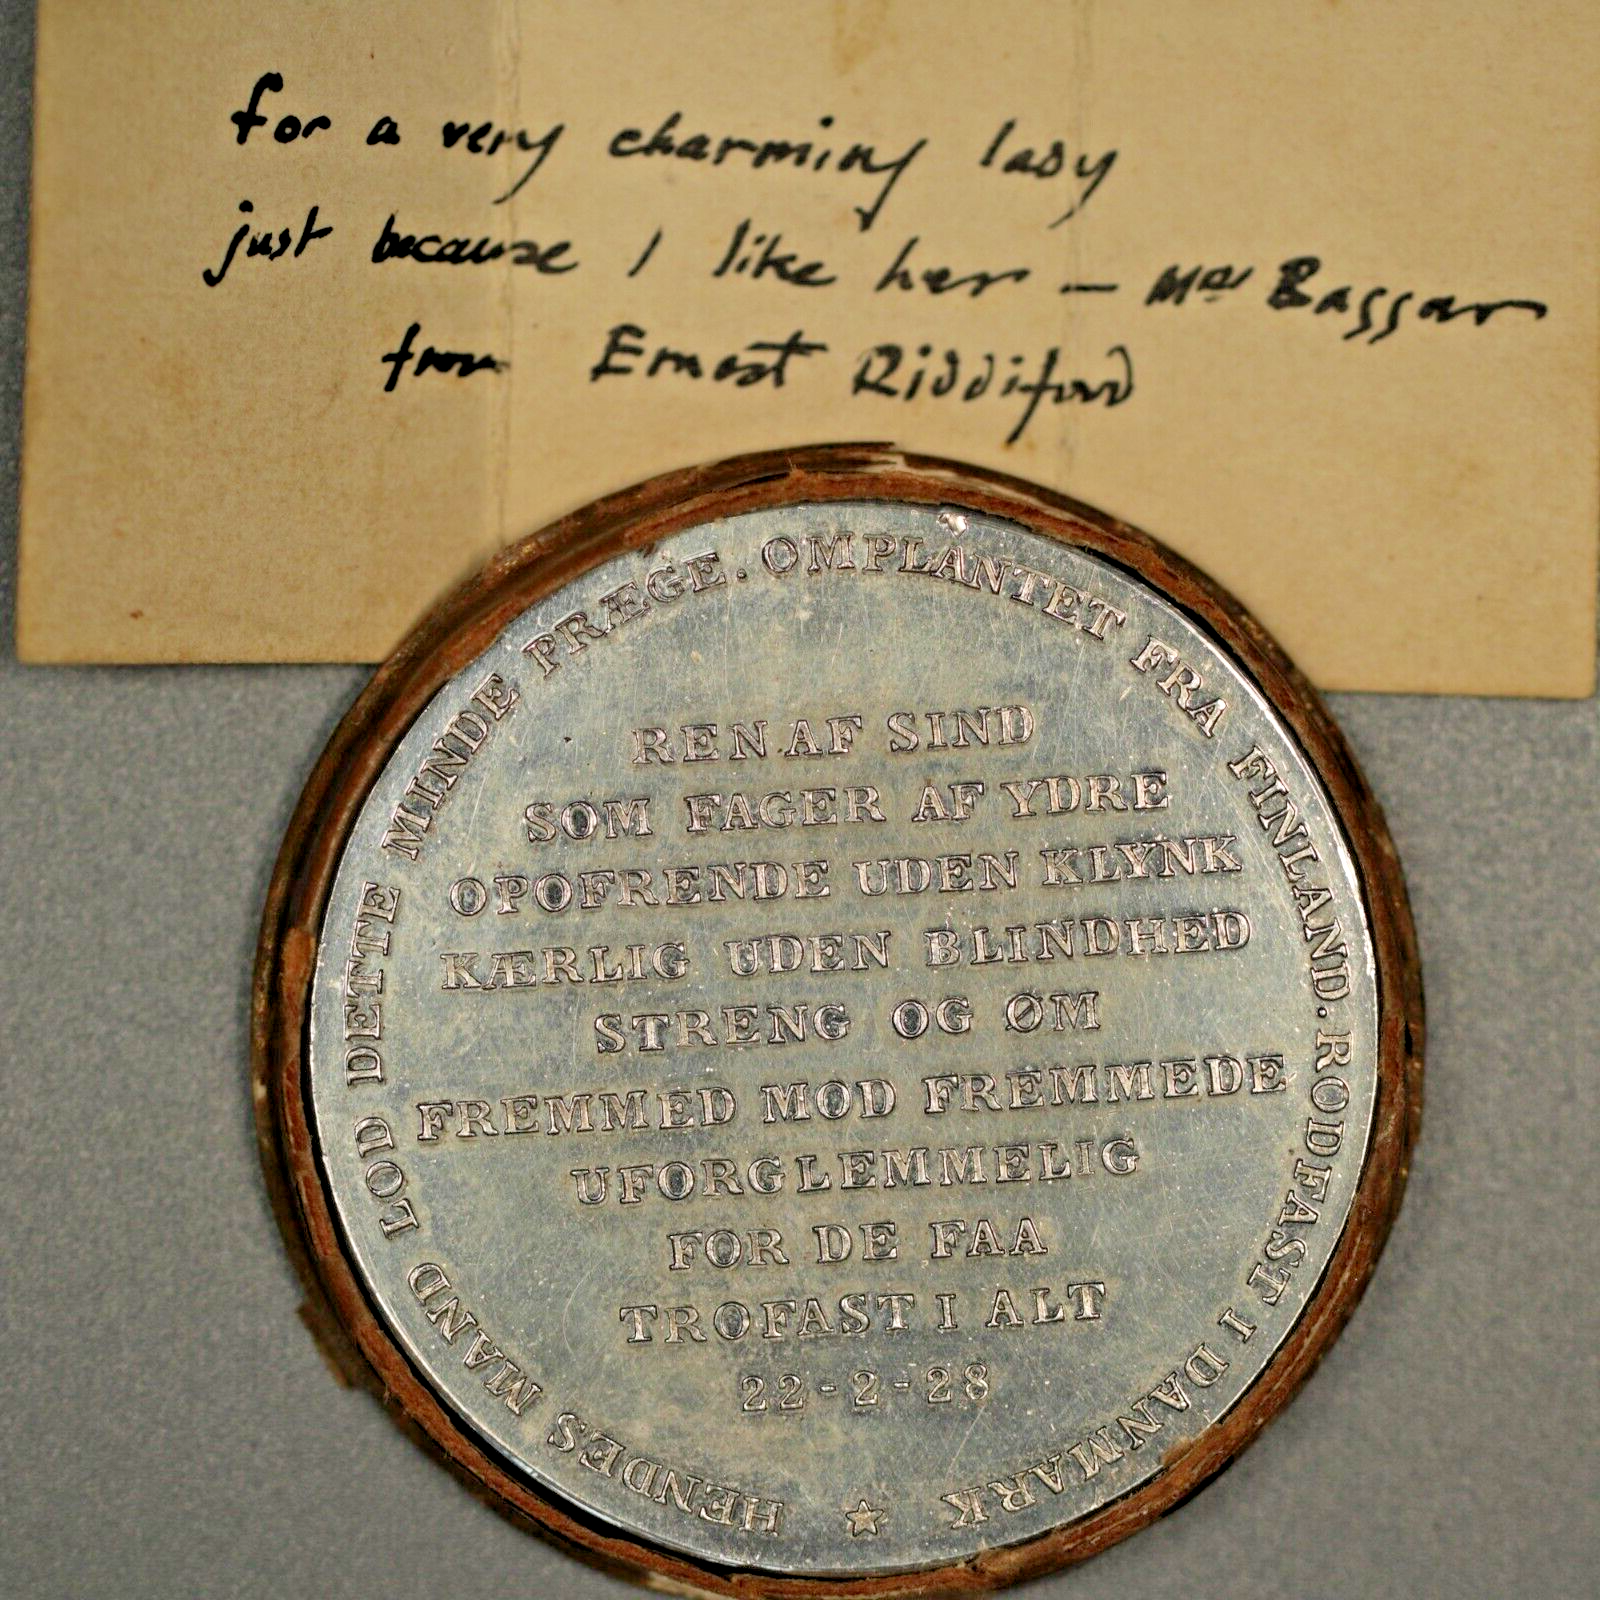 for a very charming lady
just because I like her — Mrs Bassar
from Ernest Riddiford
HENDES MAND LOD DETTE MINDE PRÆGE. OMPLANTET FRA FINLAND. RODFAST I DANMARK ★
REN AF SIND
SOM FAGER AF YDRE
OPOFRENDE UDEN KLYNK
KÆRLIG UDEN BLINDHED
STRENG OG ØM
FREMMED MOD FREMMEDE
UFORGLEMMELIG
FOR DE FAA
TROFAST I ALT
22-2-28